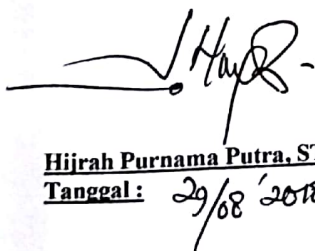 Hijrah Purnama Putra, ST
Tanggal : 29/08 '2018